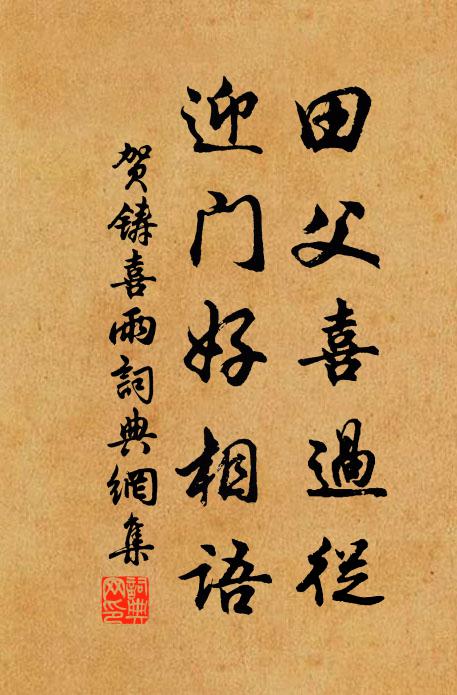 田父喜過從
迎门好相語
贺鑄喜雨詞典網集
詞典网印